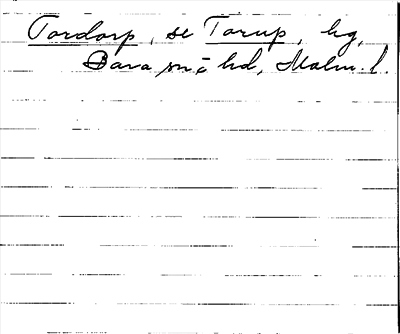 Tordorp, se Torup, hg,
Bara sn o hd, Malm. l.